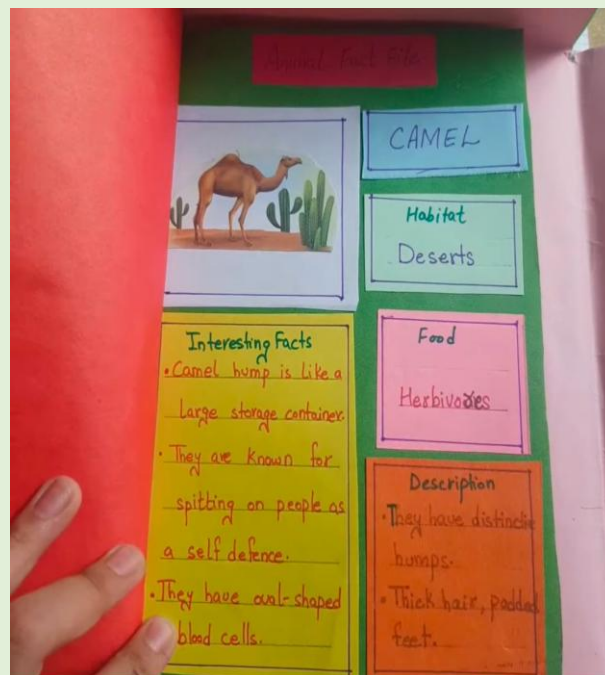 Animal Fact File
CAMEL
Habitat
Deserts
Food
Herbivores
Interesting Facts
• Camel hump is like a
large storage container.
• They are known for
spitting on people as
a self defence.
• They have oval-shaped
blood cells.
Description
• They have distinctive
humps.
• Thick hair, padded
feet.